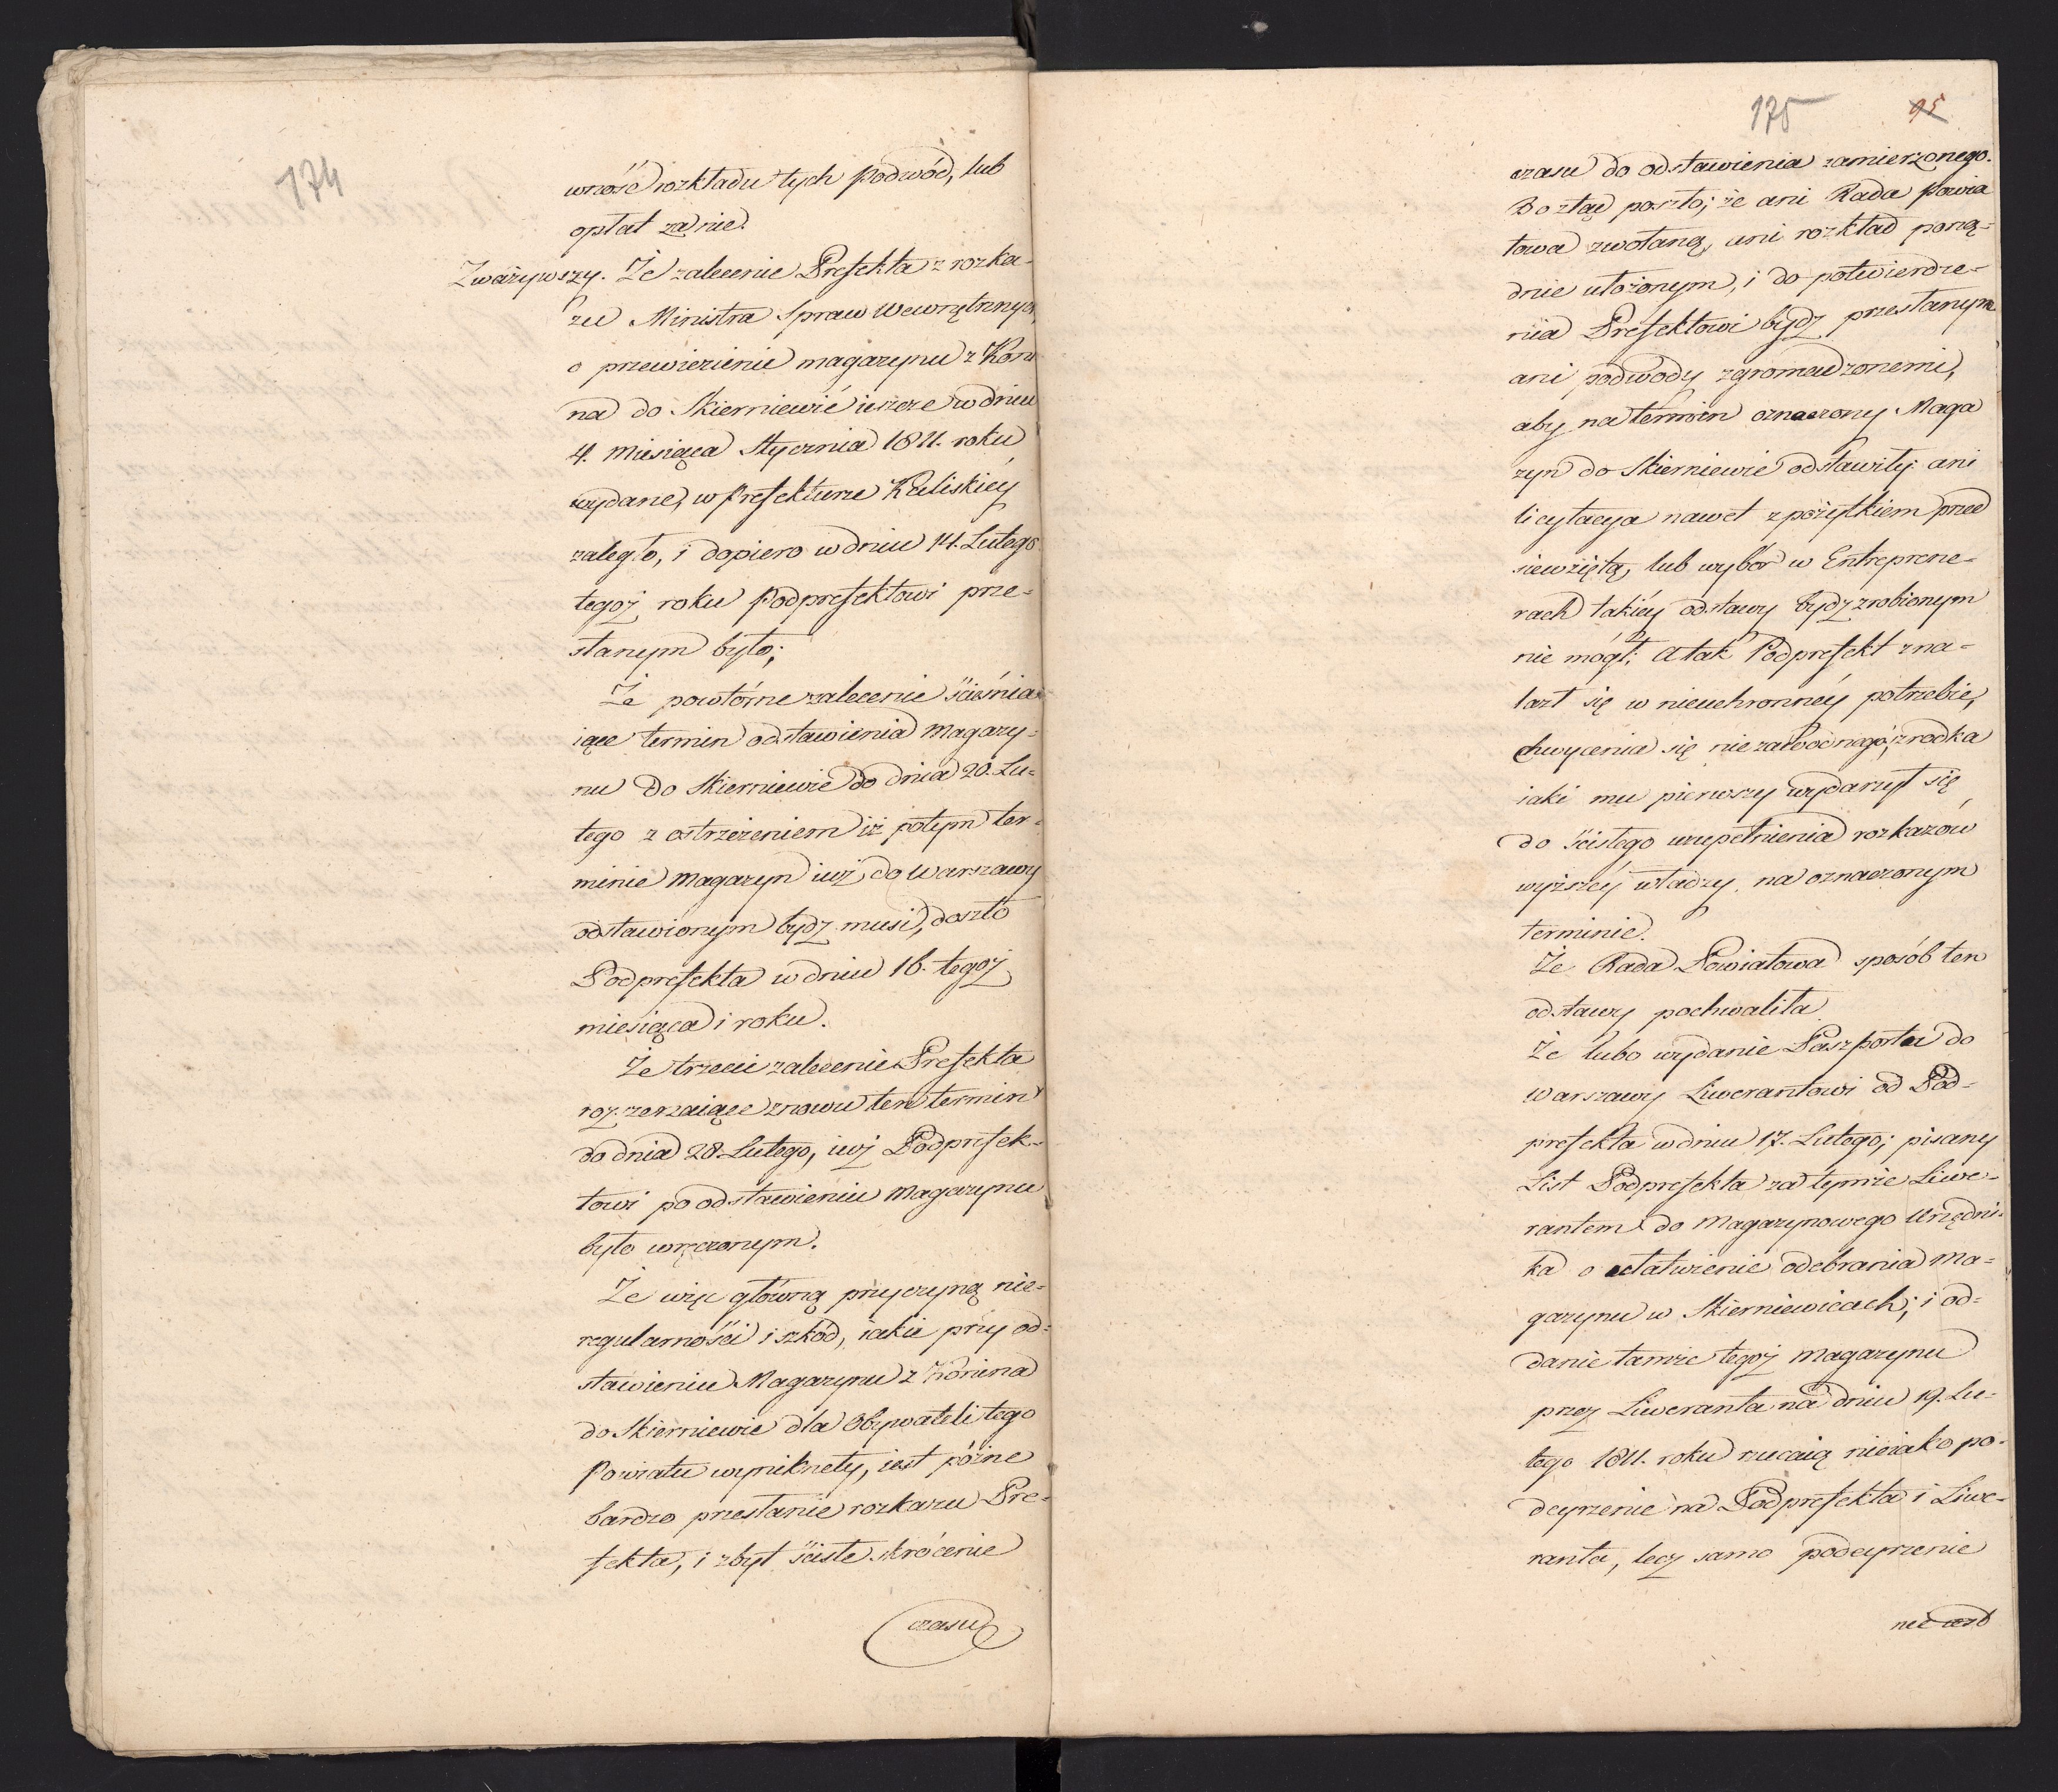 174
wność rozkładu tych podwód, lub
opłat za nie.
Zważywszy. Że zalecenie Prefekta z rozka-
zu Ministra Spraw Wewnętrznych
o przewiezienie magazynu z Koni
na do Skierniewić ieszcze w dniu
4. Miesiąca Stycznia 1811. roku
wydane, w Prefekturze Kaliskiéy
zaległo, i dopiero w dniu 14. Lutego
tegoż roku Podprefektowi prze-
słanym było;
Że powtórne zalecenie ścieśnia
iące termin odstawienia Magazy-
nu do Skierniewic do dnia 20. Lu-
tego z ostrzeżeniem iż po tym ter-
minie Magazyn iuż do Warszawy
odstawionym bydź musi, doszło
Podprefekta w dniu 16. tegoż
miesiąca i roku.
Że trzecie zalecenie Prefekta
rozszerzaiące znowu ten termin
do dnia 28. Lutego, iuż Podprefek-
towi po odstawieniu Magazynu
było wręczonym.
Że więc główną przyczyną nie-
regularności i szkód, iakie przy od-
stawieniu Magazynu z Konina
do Skierniewic dla Obywateli tego
Powiatu wyniknęły, iest późne
bardzo przesłanie rozkazu Pre-
fekta, i zbyt ścisłe skrócenie
czasu
175
95
czasu do odstawienia zamierzonego.
Bo ztąd poszło; że ani Rada Powia
towa zwołaną, ani rozkład porzą-
dnie ułożonym, i do potwierdze-
nia Prefektowi bydź przesłanym
ani podwody zgromadzonemi,
aby na termin oznaczony Maga
zyn do Skierniewic odstawiły: ani
licytacya nawet z pożytkiem przed
siewziętą, lub wybór w Entreprene-
rach takiéy odstawy bydź zrobionym
nie mógł; A tak Podprefekt zna-
lazł się w nieuchronnéy potrzebie,
chwycenia się niezawodnego, zrodka
iaki mu pierwszy wydarzył się
do ścisłego uzupełnienia rozkazów
wyższéy władzy na oznaczonym
terminie.
Że Rada Powiatowa sposób ten
odstawy pochwaliła
Że lubo wydanie Paszportu do
Warszawy Liwerantowi od Pod-
prefekta w dniu 17. Lutego; pisany
List Podprefekta za tymże Liwe-
rantem do Magazynowego Urzędni-
ka o ułatwienie odebrania Ma-
gazynu w Skierniewicach; i od-
danie tamże tegoż Magazynu
przez Liweranta na dniu 19. Lu-
tego 1811. roku rzucaią nieiako po-
deyrzenie na Podprefekta i Liwe-
ranta, lecz samo podeyrzenie